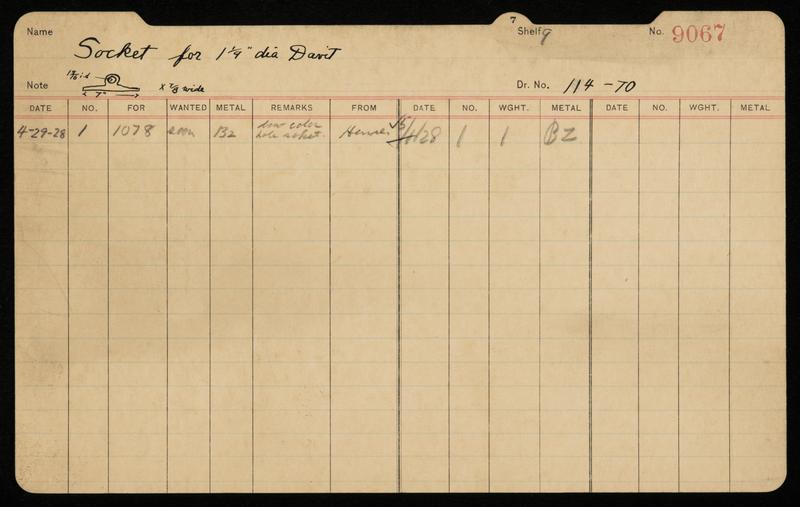 7
Name Shelf 9 No. 9067
Socket for 1 1/4" dia Davit
Note x 7/8 wide Dr. No. 114 - 70
7"
DATE NO. FOR WANTED METAL REMARKS FROM DATE NO. WGHT. METAL DATE NO. WGHT. METAL
4-29-28 1 1078 soon Bz color 28 1 1 BZ